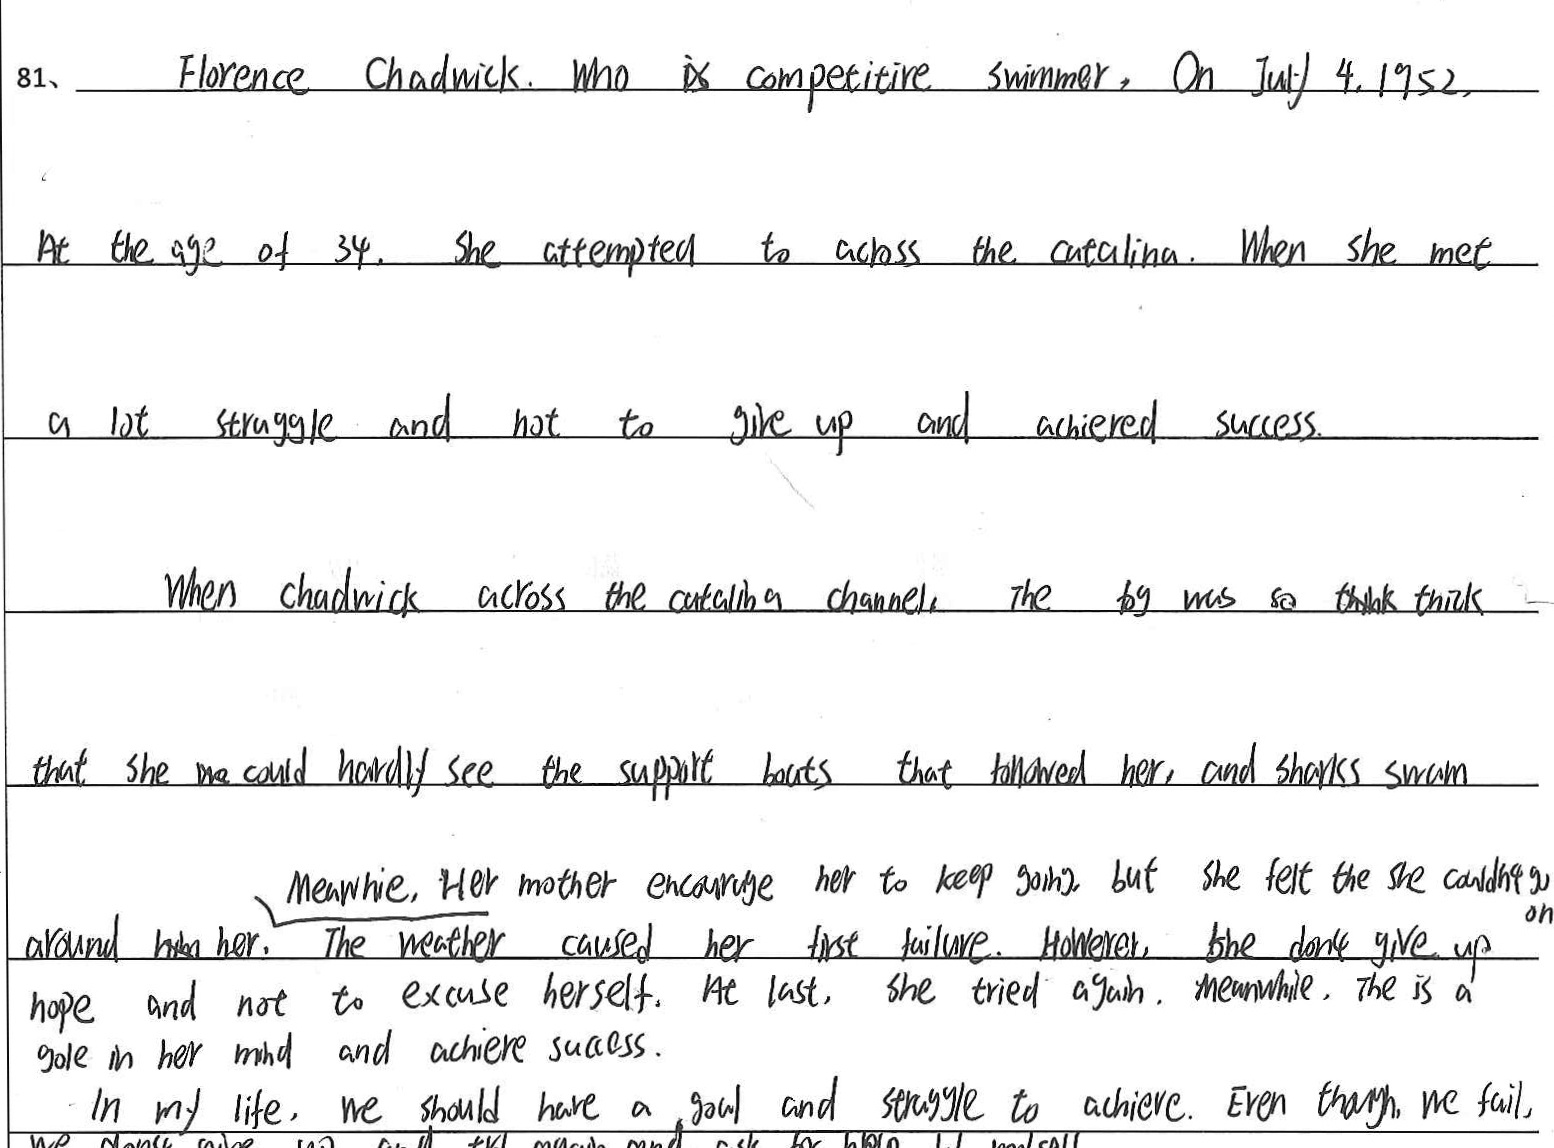 81、 Florence Chadwick. Who is competitive swimmer, On July 4. 1952,
At the age of 34. She attempted to across the catalina. When she met
a lot struggle and not to give up and achieved success.
When chadwick across the catalina channel, The fog was so think thick
that she we could hardly see the support boats that followed her, and sharks swam
Meanwhie, Her mother encourage her to keep going but she felt the she couldn't go
on
around him her. The weather caused her first failure. However, she don't give up
hope and not to excuse herself. At last, she tried again. Meanwhile, The is a
gole in her mind and achieve success.
In my life, we should have a goal and struggle to achieve. Even though, we fail,
we don't give up and try again and ask for help